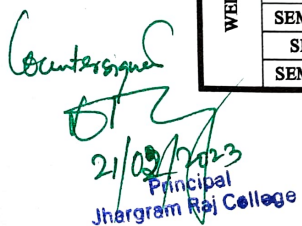 WE
SEM
SE
SEM
Countersigned
21/02/2023
Principal
Jhargram Raj College